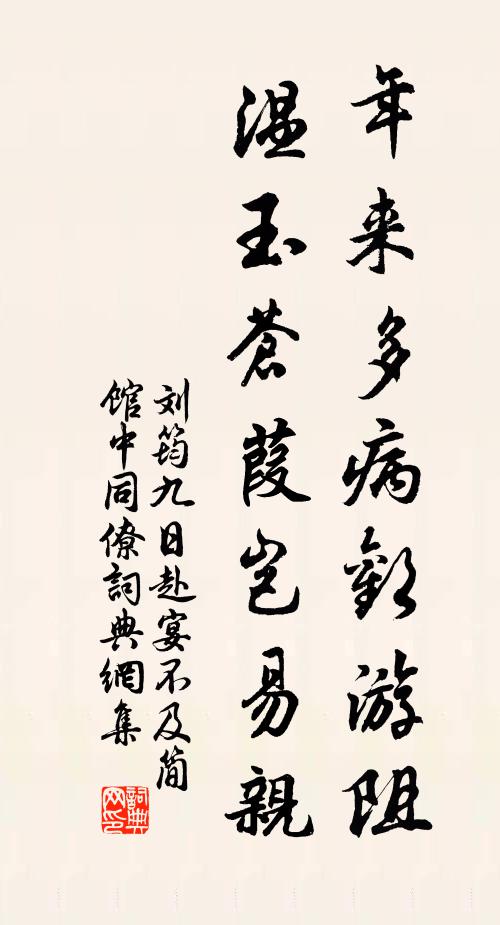 年来多病歡游阻
温玉蒼葭豈易親
刘筠九日赴宴不及简
馆中同僚詞典網集
詞典網印